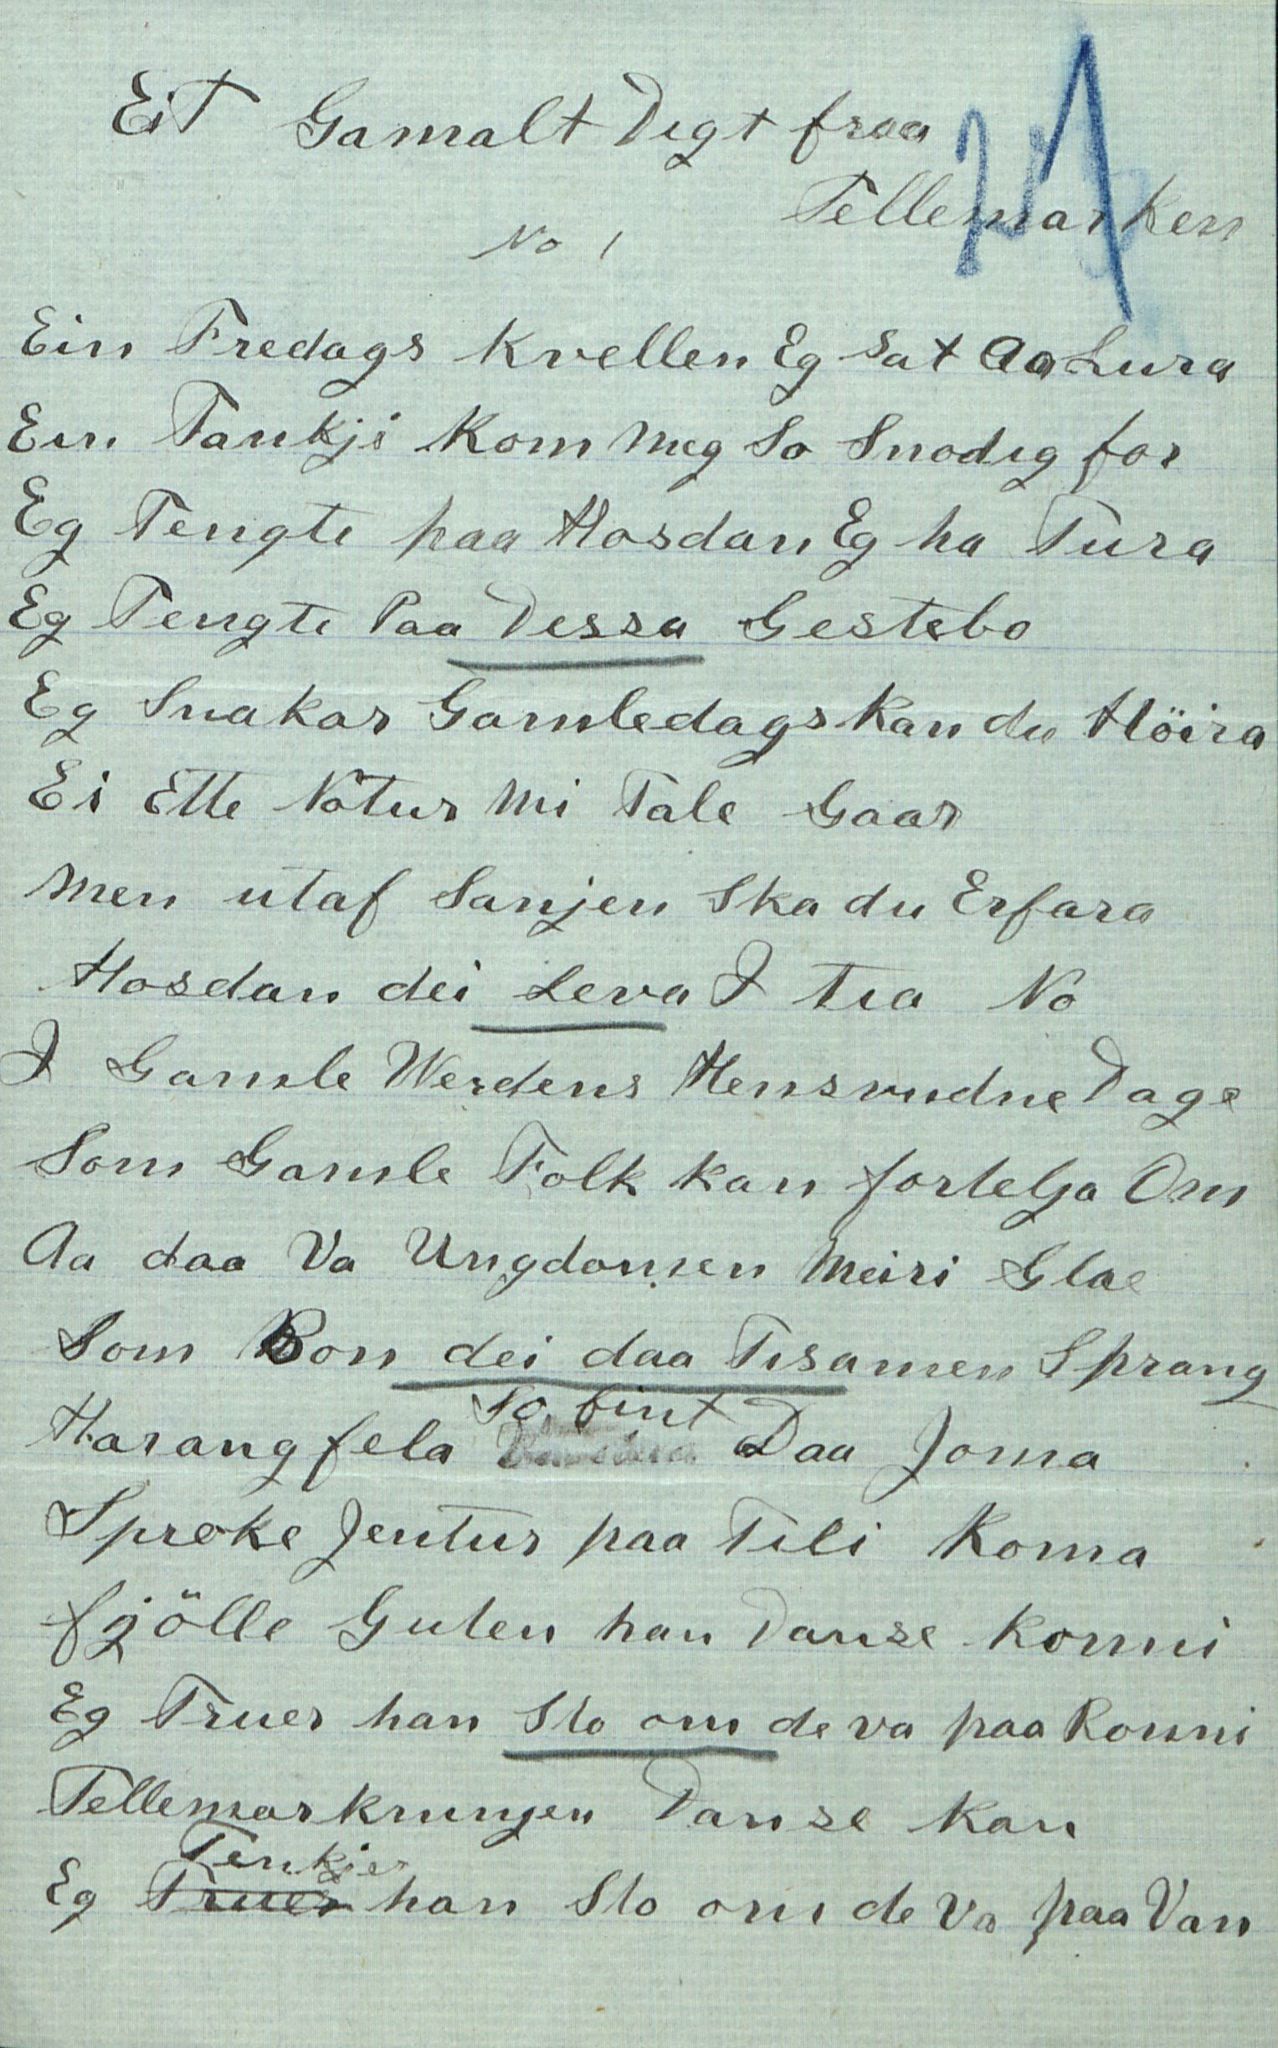 Eit Gamalt Digt fraa
Tellemarken
No 1
Ein Fredags Kvellen Eg sat Aa Lura
Ein Tankji Kom Meg So Snodig for
Eg Tengte paa Hosdan Eg ha Tura
Eg Tengte Paa Dessa Gestebo
Eg Snakar Gamledags Kan du Höira
Ei Ette Notur Mi Tale Gaar
Men utaf Sanjen Ska du Erfara
Hosdan dei Leva I tia No
I Gamle Werdens Hensvudne Dage
Som Gamle Folk kan fortelja Om
Aa daa Va Ungdomen Meiri Glae
Som Bon dei daa Tisamen Sprang
So fint
Harangfela Daa Joma
Sproke Jentur paa Tili Koma
fjölle Guten han Danse Konni
Eg Truer han Sto om de va paa Ronni
Tellemarkrunjen Danse Kan
Tenkjer
Eg Truer han Sto om de Va paa Van